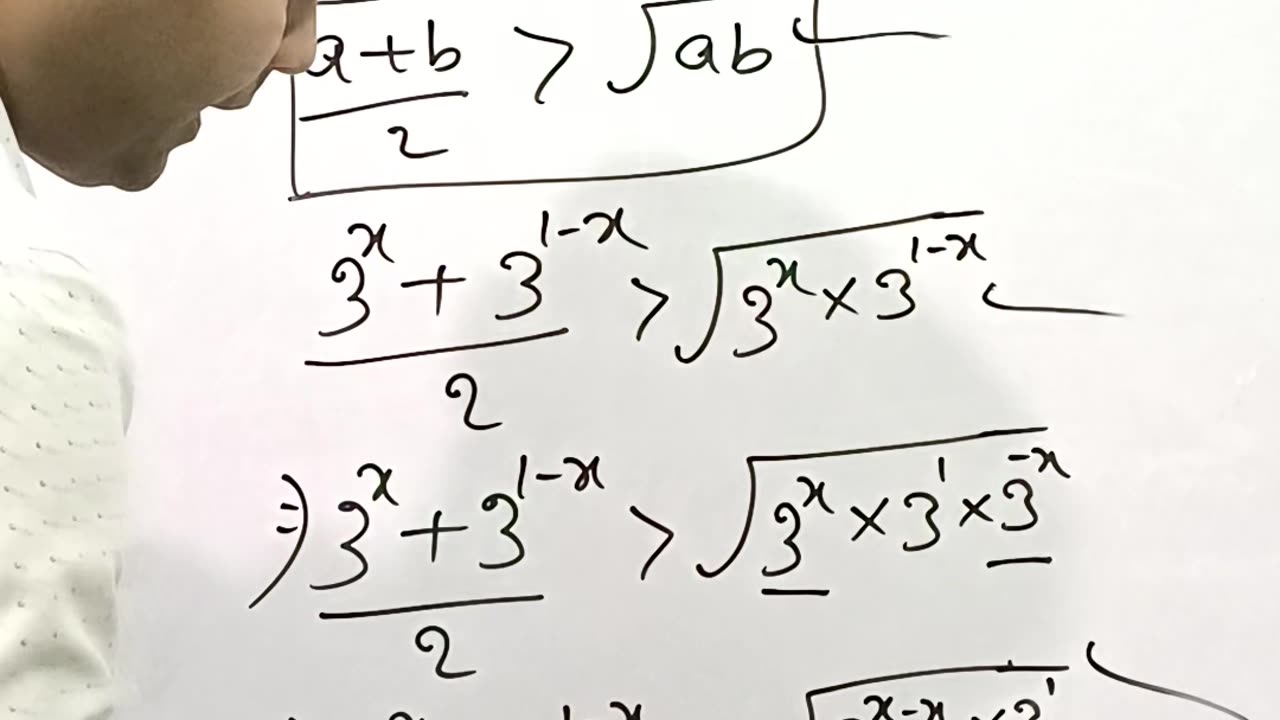 a+b/2 > √ab
3^x + 3^(1-x)/2 > √(3^x × 3^(1-x))
⇒ 3^x + 3^(1-x)/2 > √(3^x × 3^1 × 3^-x)
1-x √(x-x × 3^1